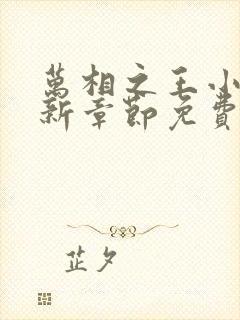 萬相之王小
新章節免費
芷夕